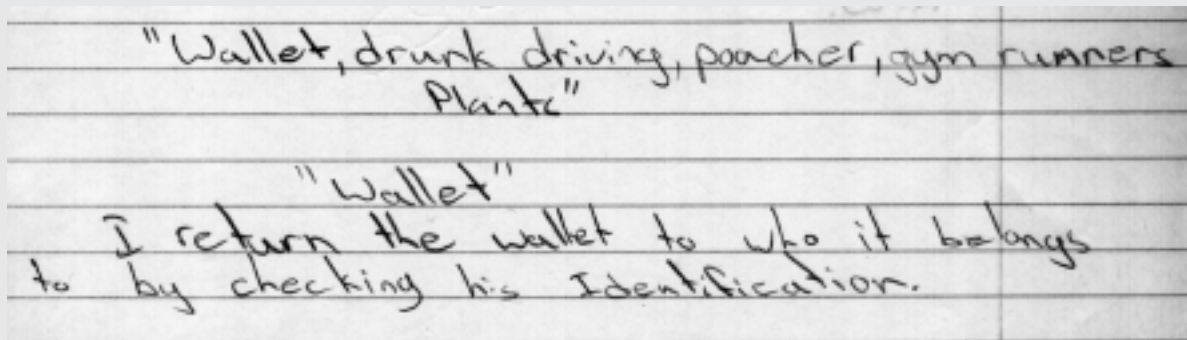 "Wallet, drunk driving, poacher, gym runners
Plants"
"Wallet"
I return the wallet to who it belongs
to by checking his Identification.